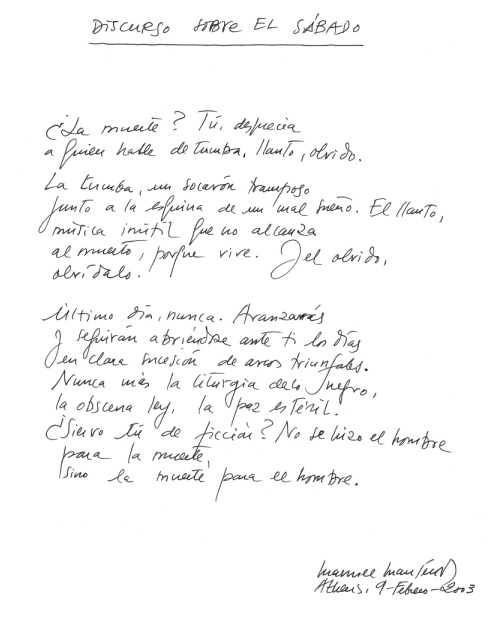 DISCURSO SOBRE EL SÁBADO
¿La muerte? Tú, desprecia
a quien hable de tumba, llanto, olvido.
La tumba, un socavón tramposo
junto a la esquina de un mal sueño. El llanto,
mítica inútil que no alcanza
al muerto, porque vive. Y el olvido,
olvídalo.
Último día, nunca. Avanzarás
y seguirán abriéndose ante ti los días
en clara sucesión de arcos triunfales.
Nunca más la liturgia de lo negro,
la obscena ley, la paz estéril.
¿Siervo tú de ficción? No se hizo el hombre
para la muerte,
sino la muerte para el hombre.
Manuel
Athens, 9-Febrero-2003